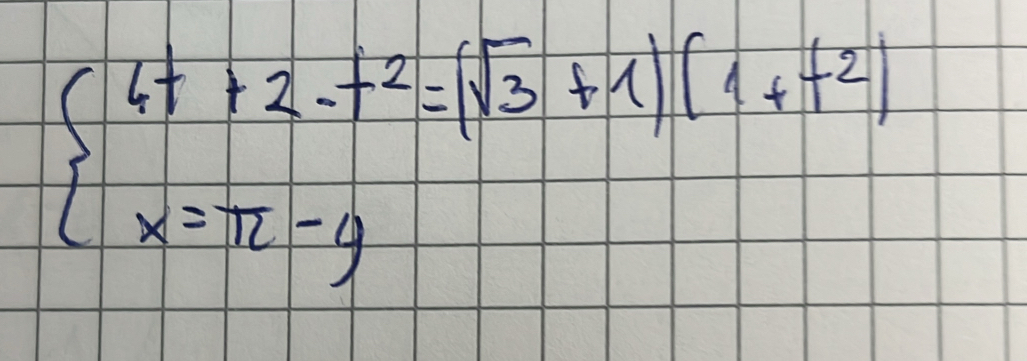 4t + 2 - t² = (√3 + 1)(1 + t²)
x = π - y